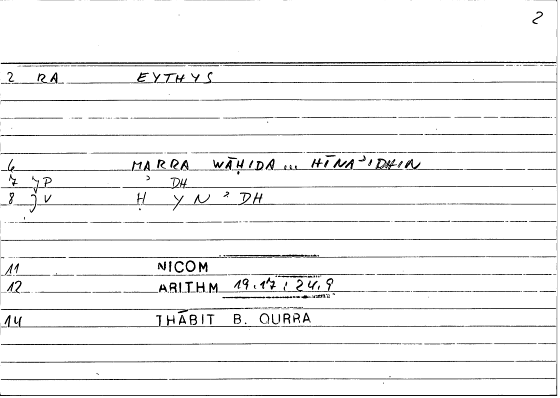 2
2 RA EYTHYS
6 MARRA WĀḤIDA ... ḤĪNAʾIDHIN
7 } P ʾ DH
8 } V Ḥ Y N ʾ DH
11 NICOM
12 ARITHM 19.17 ; 24.9
14 THĀBIT B. QURRA